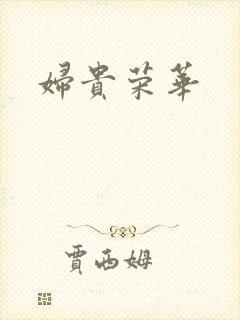 婦貴荣華
賈西姆